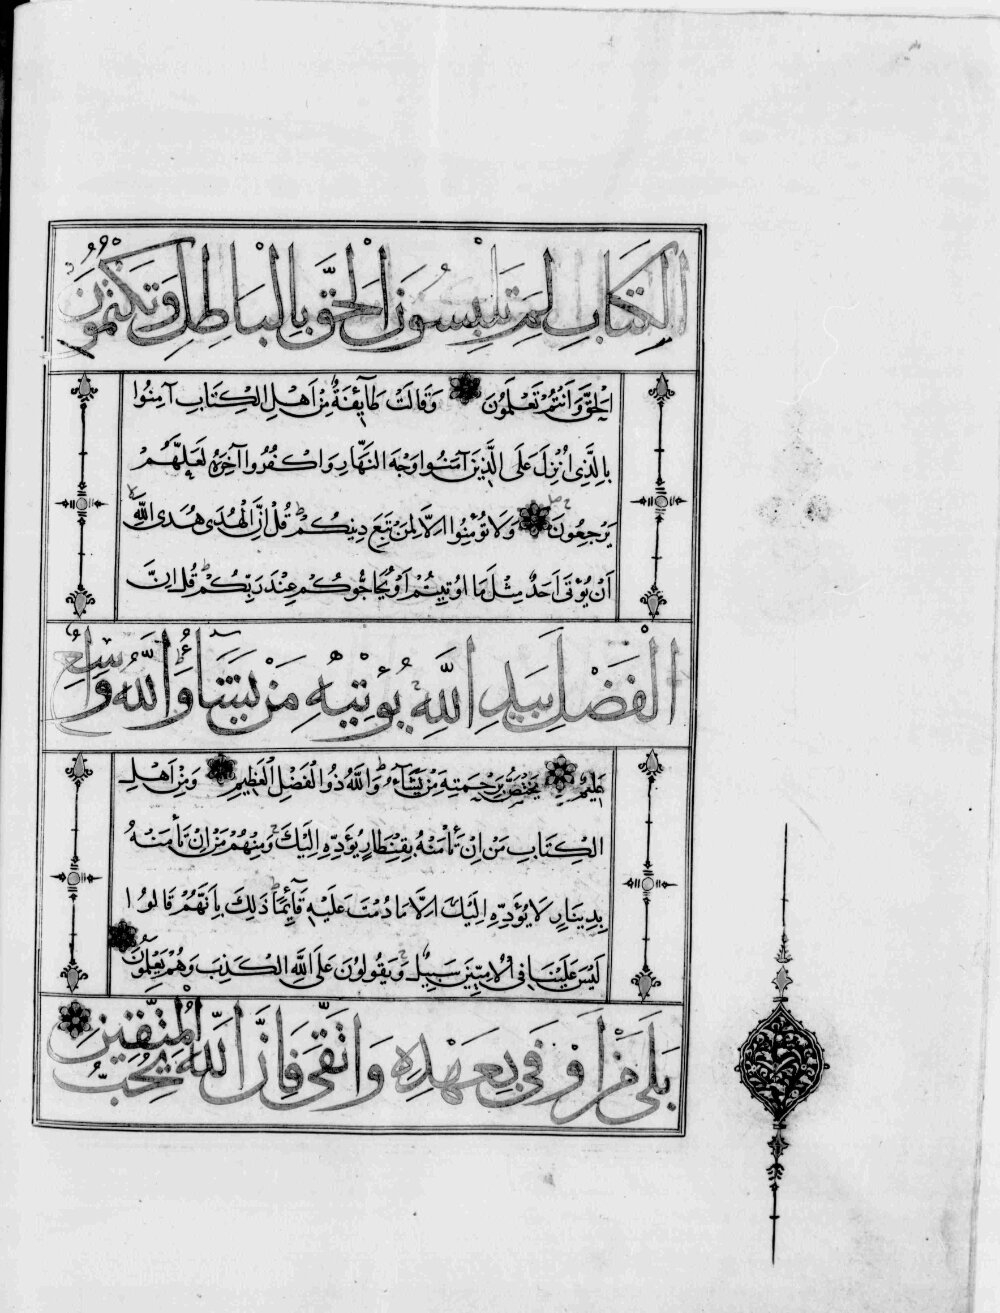 الْكِتَابِ لِمَ تَلْبِسُونَ الْحَقَّ بِالْبَاطِلِ وَتَكْتُمُونَ
الْحَقَّ وَاَنْتُمْ تَعْلَمُونَ وَقَالَتْ طَآئِفَةٌ مِنْ اَهْلِ الْكِتَابِ آمِنُوا
بِالَّذِى اُنْزِلَ عَلَى الَّذِينَ آمَنُوا وَجْهَ النَّهَارِ وَاكْفُرُوا آخِرَهُ لَعَلَّهُمْ
يَرْجِعُونَ وَلَا تُؤْمِنُوا اِلَّا لِمَنْ تَبِعَ دِينَكُمْ قُلْ اِنَّ الْهُدَى هُدَى اللَّهِ
اَنْ يُؤْتَى اَحَدٌ مِثْلَ مَا اُوتِيتُمْ اَوْ يُحَاجُّوكُمْ عِنْدَ رَبِّكُمْ قُلْ اِنَّ
الْفَضْلَ بِيَدِ اللَّهِ يُؤْتِيهِ مَنْ يَشَآءُ وَاللَّهُ وَاسِعٌ
عَلِيمٌ يَخْتَصُّ بِرَحْمَتِهِ مَنْ يَشَآءُ وَاللَّهُ ذُو الْفَضْلِ الْعَظِيمِ وَمِنْ اَهْلِ
الْكِتَابِ مَنْ اِنْ تَأْمَنْهُ بِقِنْطَارٍ يُؤَدِّهِ اِلَيْكَ وَمِنْهُمْ مَنْ اِنْ تَأْمَنْهُ
بِدِينَارٍ لَا يُؤَدِّهِ اِلَيْكَ اِلَّا مَا دُمْتَ عَلَيْهِ قَآئِمًا ذَلِكَ بِاَنَّهُمْ قَالُوا
لَيْسَ عَلَيْنَا فِى الْاُمِّيِّينَ سَبِيلٌ وَيَقُولُونَ عَلَى اللَّهِ الْكَذِبَ وَهُمْ يَعْلَمُونَ
بَلَى مَنْ اَوْفَى بِعَهْدِهِ وَاتَّقَى فَاِنَّ اللَّهَ يُحِبُّ الْمُتَّقِينَ